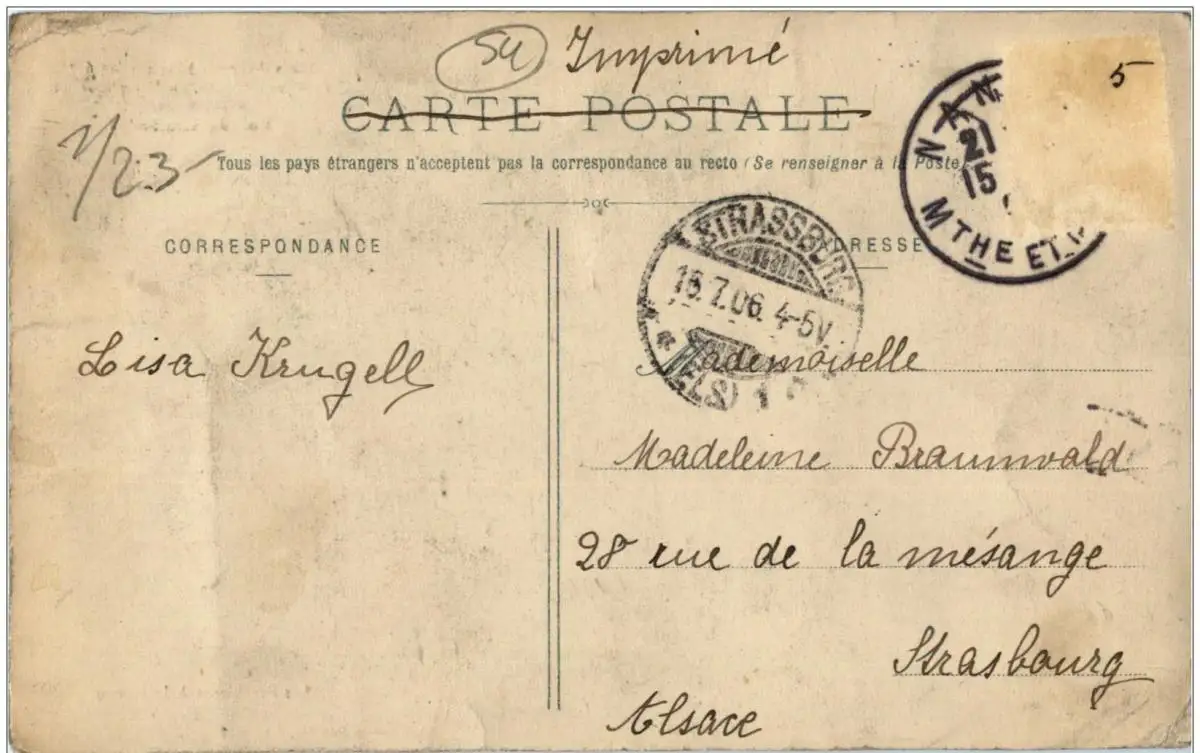 54 Imprimé
5
CARTE POSTALE
1/23
Tous les pays étrangers n'acceptent pas la correspondance au recto (Se renseigner à la Poste)
CORRESPONDANCE
ADRESSE
NAN
21
15
MTHE ET M
STRASSBURG
16.7.06. 4-5V
(ELS) 1
Lisa Krugell
Mademoiselle
Madeleine Braunwald
28 rue de la mésange
Strasbourg
Alsace